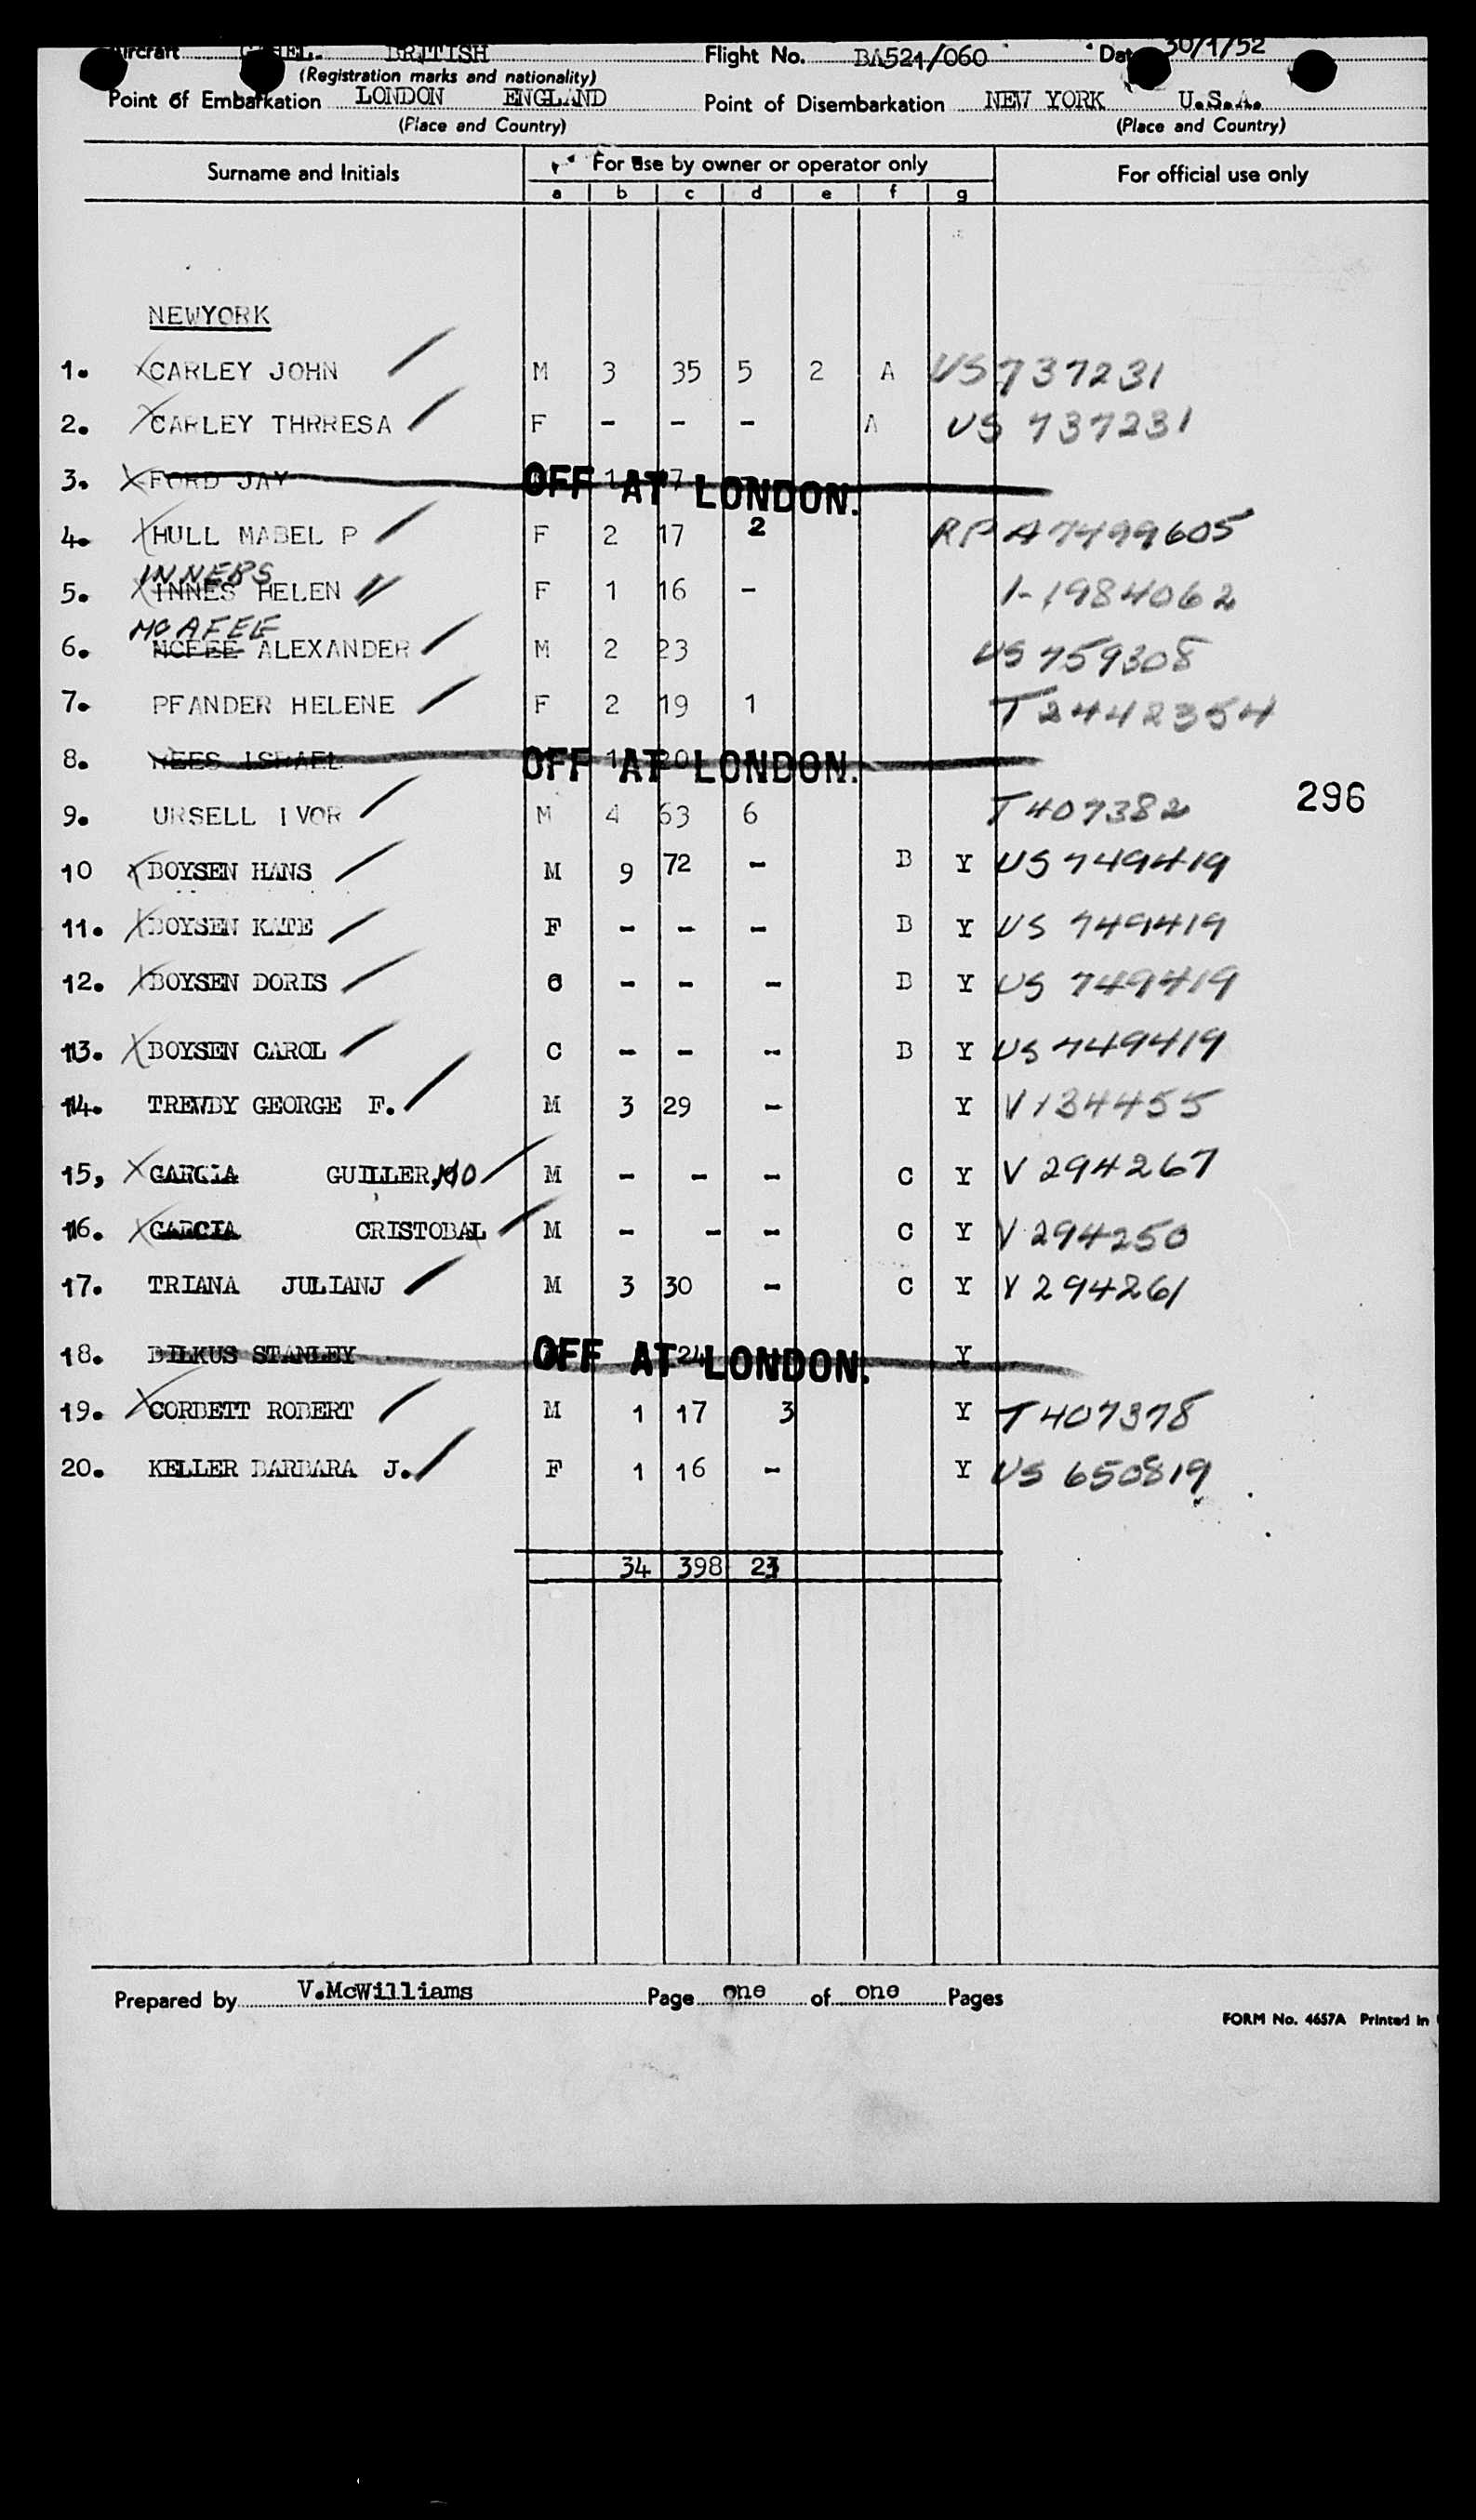 Aircraft BRITISH Flight No. BA521/060 Date 30/1/52
(Registration marks and nationality)
Point of Embarkation LONDON ENGLAND Point of Disembarkation NEW YORK U.S.A.
(Place and Country) (Place and Country)
Surname and Initials For use by owner or operator only For official use only
a b c d e f g
NEWYORK
1. CARLEY JOHN M 3 35 5 2 A US 737231
2. CARLEY THRRESA F - - - A US 737231
3. FORD JAY 1 17 OFF AT LONDON.
4. HULL MABEL P F 2 17 2 RP A7499605
INNERS
5. INNES HELEN F 1 16 - 1-1984062
MCAFEE
6. MCFEE ALEXANDER M 2 23 US 759308
7. PFANDER HELENE F 2 19 1 T2442354
8. ISRAEL 1 20 OFF AT LONDON.
9. URSELL IVOR M 4 63 6 T407382 296
10 BOYSEN HANS M 9 72 - B Y US 749419
11. BOYSEN KATE F - - - B Y US 749419
12. BOYSEN DORIS C - - - B Y US 749419
13. BOYSEN CAROL C - - - B Y US 749419
14. TREWBY GEORGE F. M 3 29 - Y V134455
15, GARCIA GUILLERMO M - - - C Y V 294267
16. GARCIA CRISTOBAL M - - - C Y V 294250
17. TRIANA JULIANJ M 3 30 - C Y V 294261
18. BILKUS STANLEY OFF AT LONDON. Y
19. CORBETT ROBERT M 1 17 3 Y T407378
20. KELLER BARBARA J. F 1 16 - Y US 650819
34 398 23
Prepared by V.McWilliams Page one of one Pages
FORM No. 4657A Printed in